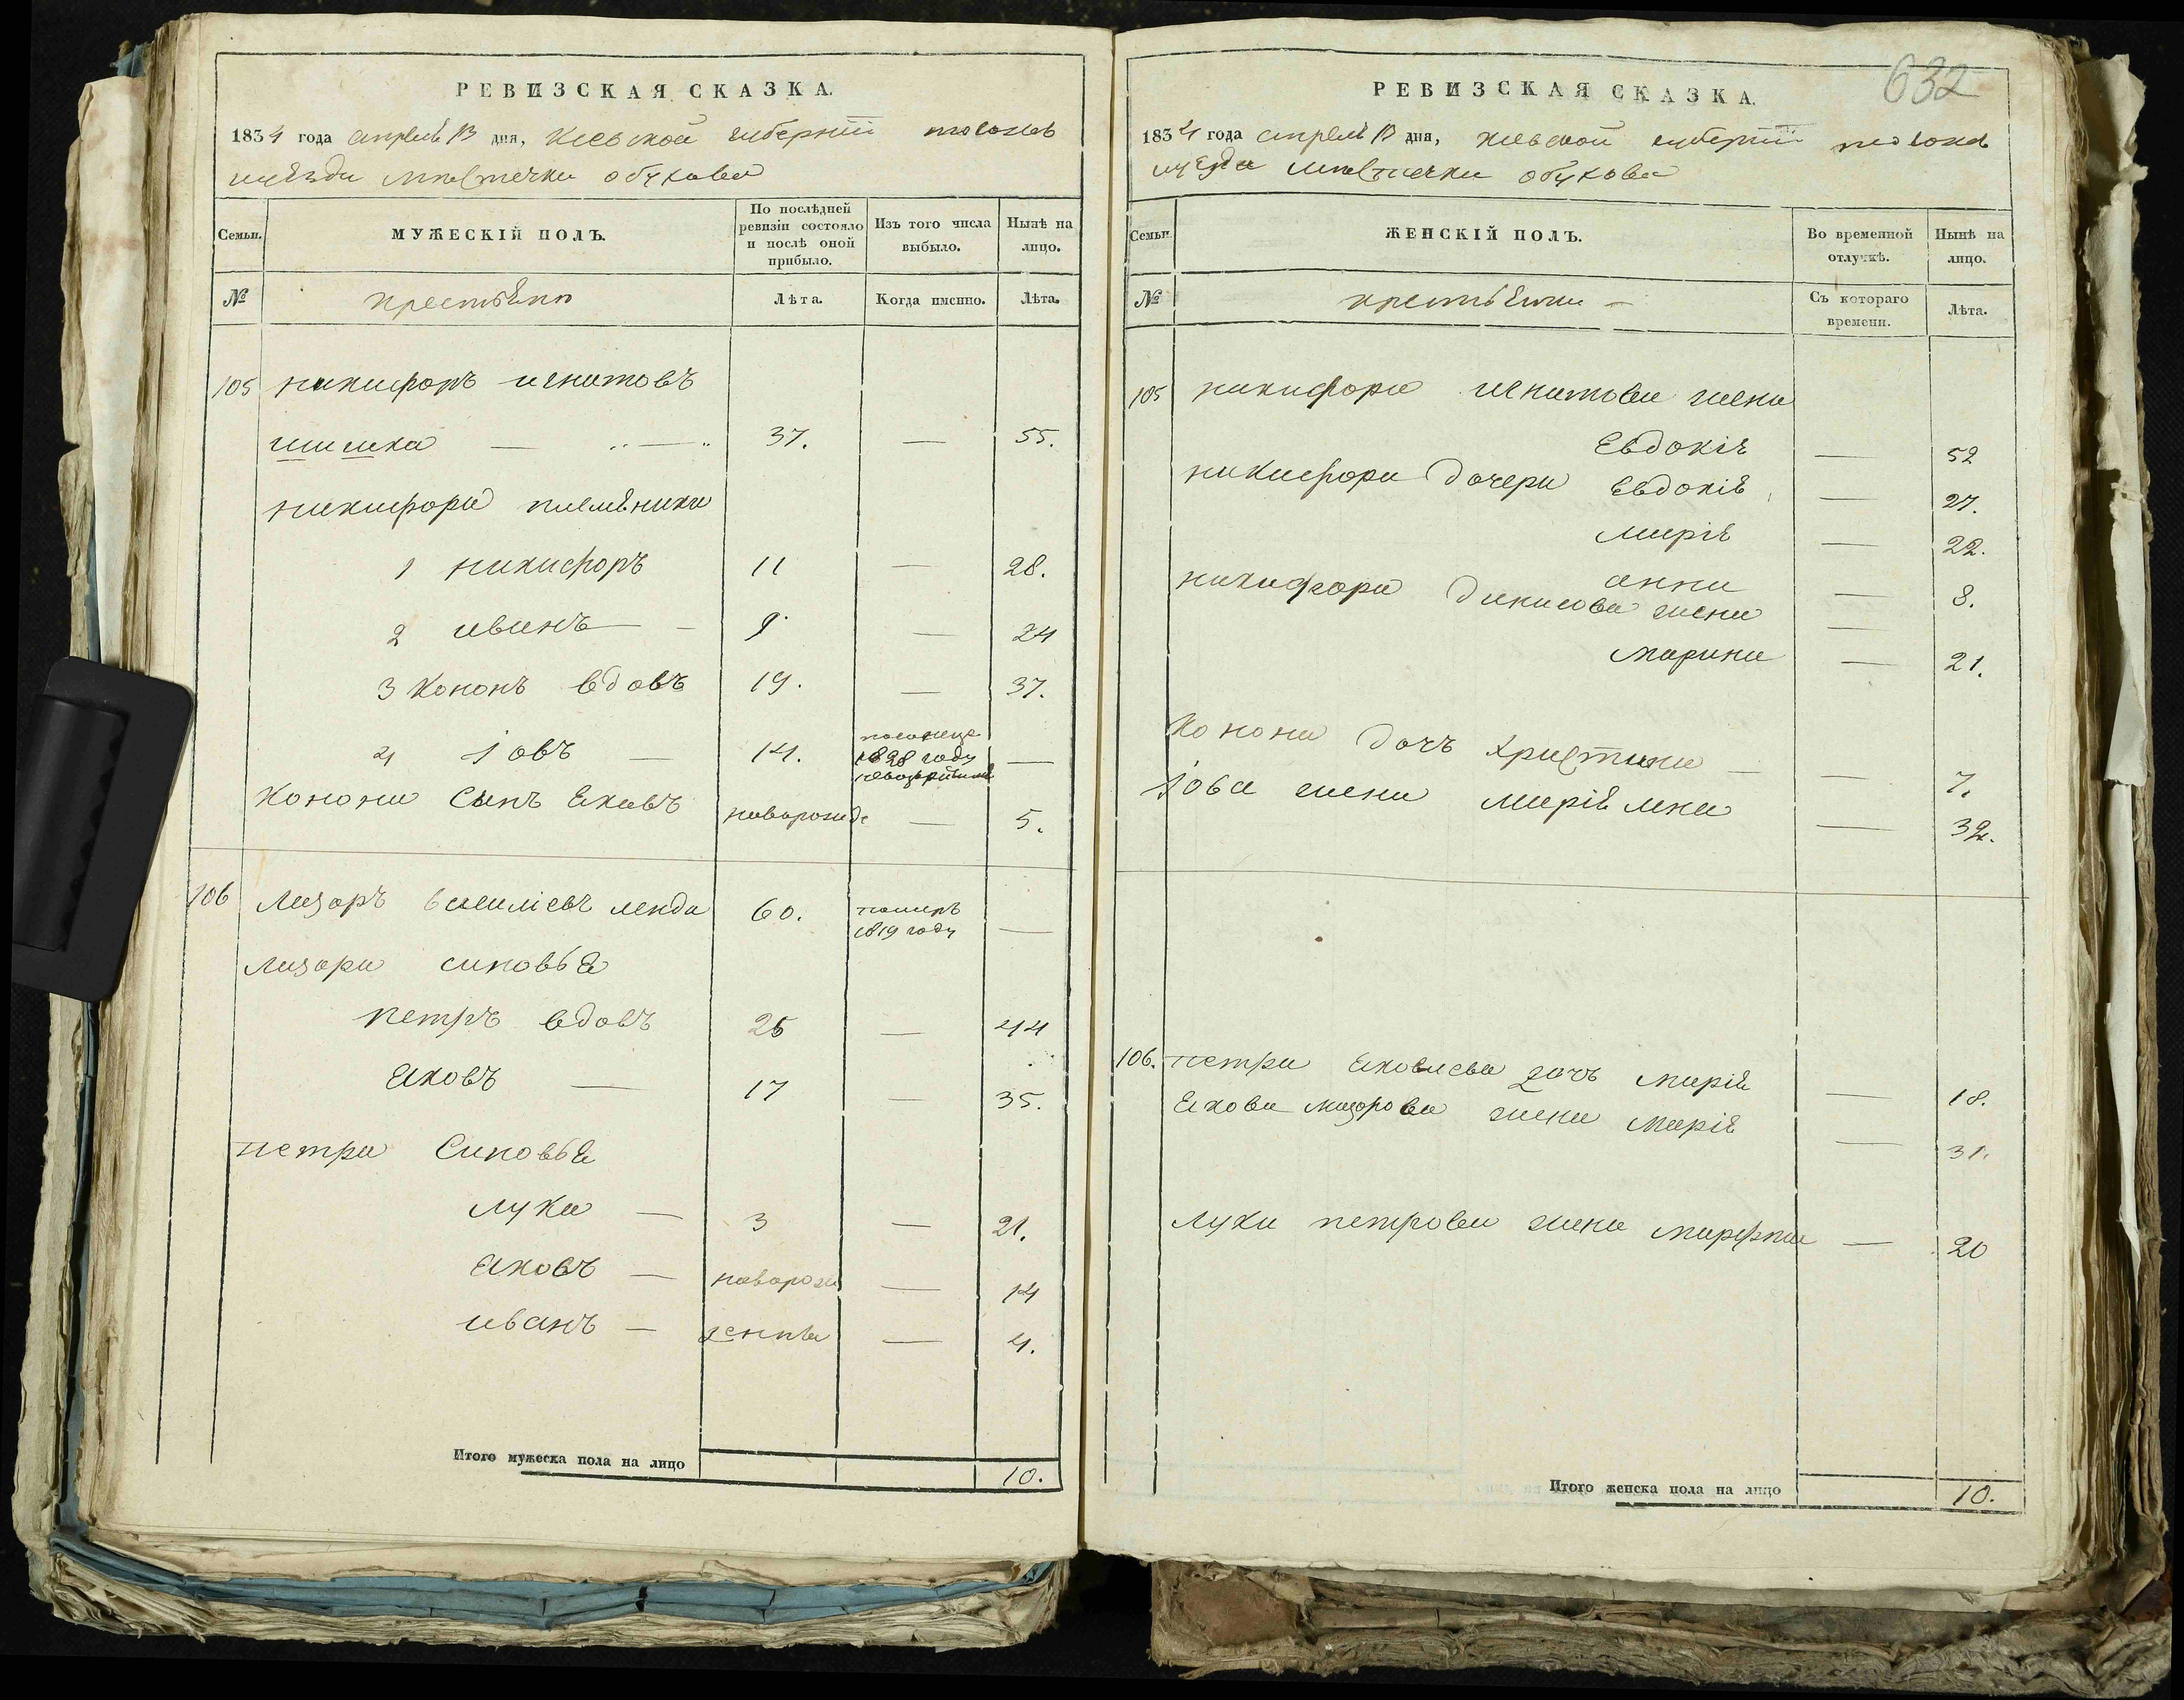 РЕВИЗСКАЯ СКАЗКА.
1834 года апреля 13 дня, Киевской губернии
уезда местечка обухова
Семьи. МУЖЕСКІЙ ПОЛЪ. По послѣдней ревизіи состояло и послѣ оной прибыло. Изъ того числа выбыло. Нынѣ на лицо.
№ крестьянъ Лѣта. Когда именно. Лѣта.
105 никифоръ игнатовъ
шишка — 37. — 55.
никифора племѣники
1 никифоръ 11 — 28.
2 иванъ — 9. — 24
3 Кононъ вдовъ 19. — 37.
4 іовъ — 14. 1828 году —
Конона Сынъ Яковъ наворожд — 5.
106 Лазоръ василіевъ ленда 60. померъ 1819 году —
Лазора синовья
Петръ вдовъ 26 — 44
Яковъ — 17 — 35.
петра Синовья
лука — 3 — 21.
Яковъ — наворож — 14
иванъ — — 4.
Итого мужеска пола на лицо 10.
632
РЕВИЗСКАЯ СКАЗКА.
1834 года апреля 13 дня, киевской губернии
уезда местечка обухова
Семьи. ЖЕНСКІЙ ПОЛЪ. Во временной отлучкѣ. Нынѣ на лицо.
№ Съ котораго времени. Лѣта.
105 никифора игнатова жена
Евдокія — 52
никифора дочери Евдокія — 27.
марія — 22.
анна — 8.
никифора жена —
марина — 21.
Конона дочъ христина — — 7.
іова жена марія — 32.
106. петра дочъ марія — 18.
Якова лазорова жена марія — 31.
луки петрова жена марфта — 20
Итого женска пола на лицо 10.